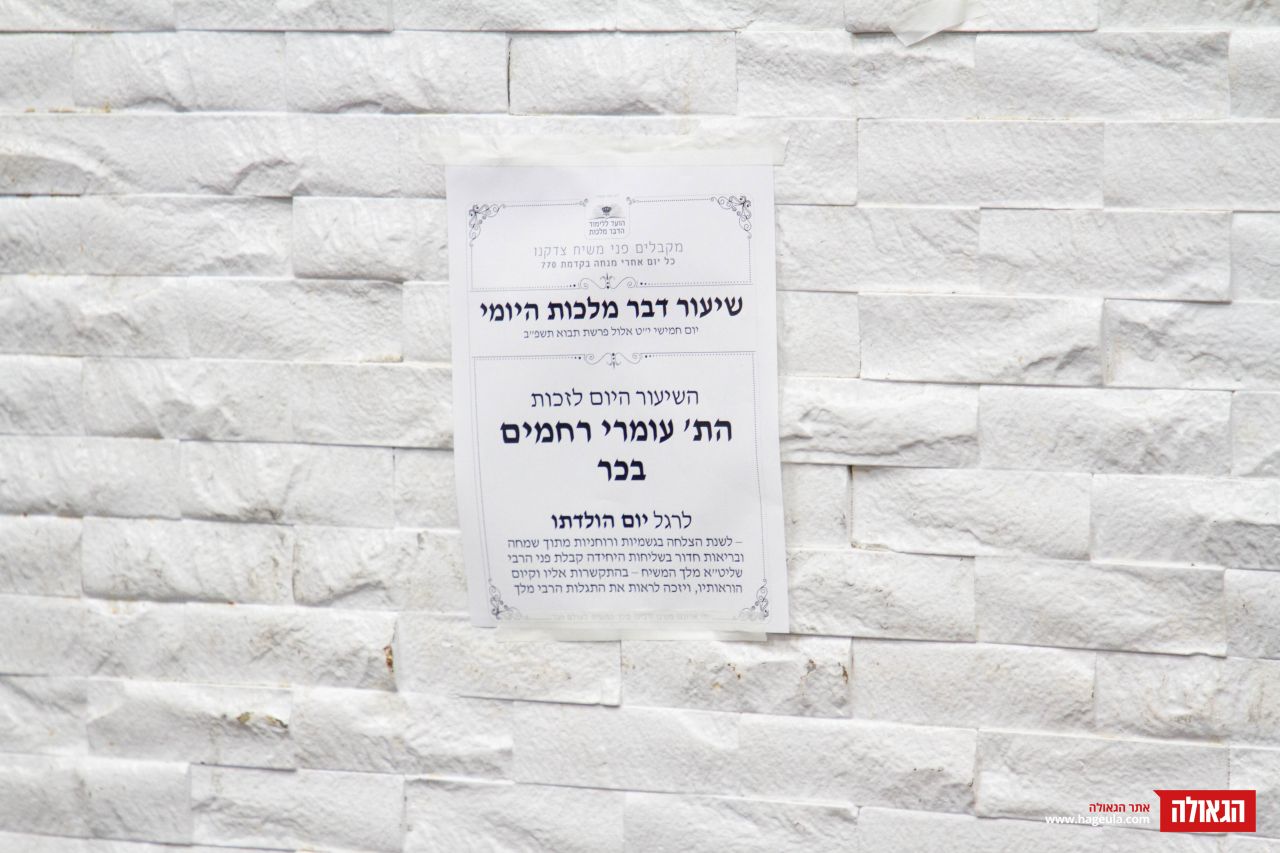 הועד ללימוד
הדבר מלכות
מקבלים פני משיח צדקנו
כל יום אחרי מנחה בקדמת 770
שיעור דבר מלכות היומי
יום חמישי י״ט אלול פרשת תבוא תשפ״ב
השיעור היום לזכות
הת׳ עומרי רחמים
בכר
לרגל יום הולדתו
– לשנת הצלחה בגשמיות ורוחניות מתוך שמחה
ובריאות חדור בשליחות היחידה קבלת פני הרבי
שליט״א מלך המשיח – בהתקשרות אליו וקיום
הוראותיו, ויזכה לראות את התגלות הרבי מלך
אתר הגאולה
www.hageula.com
הגאולה